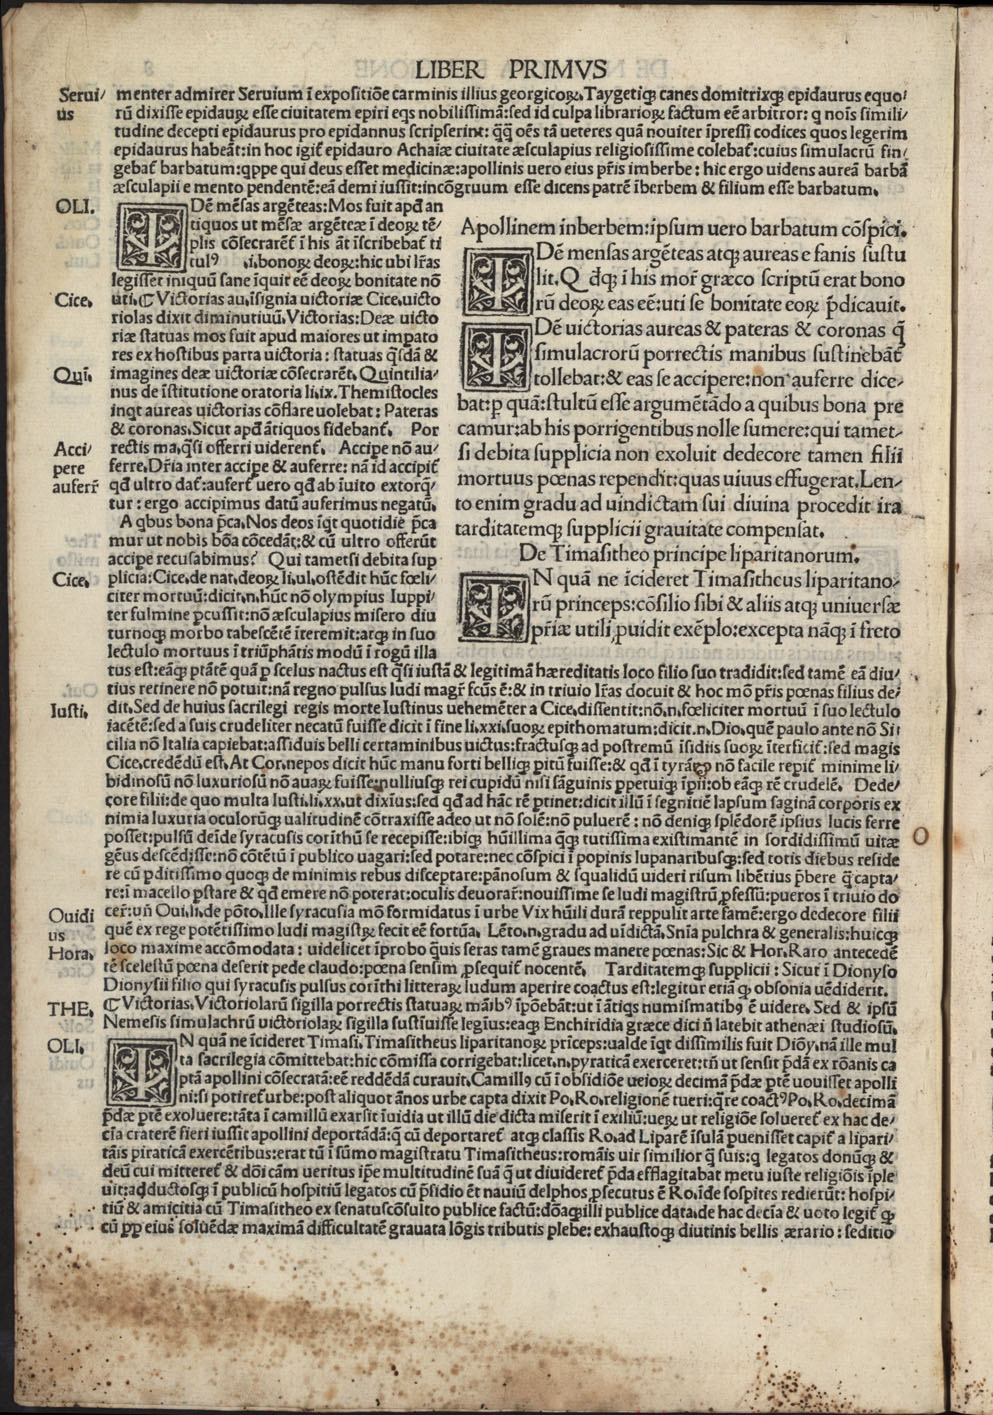 LIBER PRIMVS
Serui/
us
menter admirer Seruium ĩ expositiõe carminis illius georgicoꝝ. Taygetiqꝫ canes domitrixqꝫ epidaurus equo/
rũ dixisse epidauꝝ esse ciuitatem epiri eqs nobilissimã: sed id culpa librarioꝝ factum eẽ arbitror: q noĩs simili/
tudine decepti epidaurus pro epidannus scripserint: q̃q̃ oẽs tã ueteres quã nouiter ĩpressi codices quos legerim
epidaurus habeãt: in hoc igit̃ epidauro Achaiæ ciuitate æsculapius religiosissime colebat̃: cuius simulacrũ fin/
gebat̃ barbatum: qppe qui deus esset medicinæ: apollinis uero eius pr̃is imberbe: hic ergo uidens aureã barbã
æsculapii e mento pendentẽ: eã demi iussit: incõgruum esse dicens patrẽ ĩberbem & filium esse barbatum.
OLI.
IDẽ mẽsas argẽteas: Mos fuit apđ an
tiquos ut mẽsæ argẽteæ ĩ deoꝝ tẽ/
plis cõsecrarẽt̃ ĩ his ãt ĩscribebat̃ ti
tulꝰ .i. bonoꝝ deoꝝ: hic ubi lr̃as
legisset iniquũ sane ĩquit eẽ deoꝝ bonitate nõ
Cice.
uti. ¶ Victorias au. ĩsignia uictoriæ Cice. uicto
riolas dixit diminutiuũ. Victorias: Deæ uicto
riæ statuas mos fuit apud maiores ut impato
res ex hostibus parta uictoria: statuas q̃sdã &
Quĩ.
imagines deæ uictoriæ cõsecrarẽt. Quintilia/
nus de ĩstitutione oratoria li. ix. Themistocles
inqt aureas uictorias cõflare uolebat: Pateras
& coronas. Sicut apđ ãtiquos fidebant̃. Por
Acci/
pere
auferr̃
rectis ma. q̃si offerri uiderent̃. Accipe nõ au/
ferre. Dr̃ia inter accipe & auferre: nã id accipit̃
qđ ultro dat̃: aufert̃ uero qđ ab ĩuito extorq̃/
tur: ergo accipimus datũ auferimus negatũ.
A qbus bona p̃ca. Nos deos ĩqt quotidie p̃ca
mur ut nobis bõa cõcedãt: & cũ ultro offerũt
accipe recusabimus? Qui tametsi debita sup
Cice.
plicia: Cice. de nat. deoꝝ li. ul. ostẽdit hũc fœli/
citer mortuũ: dicit. n. hũc nõ olympius Iuppi/
ter fulmine pcussit: nõ æsculapius misero diu
turnoqꝫ morbo tabescẽtẽ ĩteremit: atqꝫ in suo
lectulo mortuus ĩ triũphãtis modũ ĩ rogũ illa
Apollinem inberbem: ipsum uero barbatum cõspici.
IDẽ mensas argẽteas atqꝫ aureas e fanis sustu
lit. Q đqꝫ ĩ his mor̃ græco scriptũ erat bono
rũ deoꝝ eas eẽ: uti se bonitate eoꝝ p̃dicauit.
IDẽ uictorias aureas & pateras & coronas q̃
simulacrorũ porrectis manibus sustinebãt̃
tollebat: & eas se accipere: non auferre dice/
bat: ꝑ quã: stultũ esse argumẽtãdo a quibus bona pre
camur: ab his porrigentibus nolle sumere: qui tamet/
si debita supplicia non exoluit dedecore tamen filii
mortuus pœnas rependit: quas uiuus effugerat. Len/
to enim gradu ad uindictam sui diuina procedit ira
tarditatemqꝫ supplicii grauitate compensat.
De Timasitheo principe liparitanorum.
IN quã ne ĩcideret Timasitheus liparitano/
rũ princeps: cõsilio sibi & aliis atqꝫ uniuersæ
pr̃iæ utili ꝓuidit exẽplo: excepta nãqꝫ ĩ freto
tus est: eãqꝫ ptãtẽ quã ꝑ scelus nactus est q̃si iustã & legitimã hæreditatis loco filio suo tradidit: sed tamẽ eã diu/
tius retinere nõ potuit: nã regno pulsus ludi magr̃ fcũs ẽ: & in triuio lr̃as docuit & hoc mõ pr̃is pœnas filius de/
Iusti.
dit. Sed de huius sacrilegi regis morte Iustinus uehemẽter a Cice. dissentit: nõ. n. fœliciter mortuũ ĩ suo lectulo
iacẽtẽ: sed a suis crudeliter necatũ fuisse dicit ĩ fine li. xxi. suoꝝ epithomatum: dicit. n. Dio. quẽ paulo ante nõ Si
cilia nõ Italia capiebat: assiduis belli certaminibus uictus: fractusqꝫ ad postremũ ĩsidiis suoꝝ ĩterficit̃: sed magis
Cice. credẽdũ est. At Cor. nepos dicit hũc manu forti belliqꝫ pitũ fuisse: & qđ ĩ tyrãno nõ facile repit̃ minime li/
bidinosũ nõ luxuriosũ nõ auaꝝ fuisse: nulliusqꝫ rei cupidũ nisi sãguinis ppetuiqꝫ ĩpii: ob eãqꝫ rẽ crudelẽ. Dede/
core filii: de quo multa Iusti. li. xx. ut dixĩus: sed qđ ad hãc rẽ ptinet: dicit illũ ĩ segnitiẽ lapsum saginã corporis ex
nimia luxuria oculorũqꝫ ualitudinẽ cõtraxisse adeo ut nõ solẽ: nõ puluerẽ: nõ deniqꝫ splẽdorẽ ipsius lucis ferre
posset: pulsũ deĩde syracusis corĩthũ se recepisse: ibiqꝫ hũillima qq̃ tutissima existimantẽ in sordidissimũ uitæ
gẽus descẽdisse: nõ cõtẽtũ ĩ publico uagari: sed potare: nec cõspici ĩ popinis lupanaribusqꝫ: sed totis diebus reside
re cũ pditissimo quoqꝫ de minimis rebus disceptare: pãnosum & squalidũ uideri risum libẽtius p̃bere q̃ capta/
re: ĩ macello pstare & qđ emere nõ poterat: oculis deuorar̃: nouissime se ludi magistrũ ꝓfessũ: pueros ĩ triuio do
Ouidi
us
cer̃: uñ Oui. li. de põto. Ille syracusia mõ formidatus ĩ urbe Vix hũili durã reppulit arte famẽ: ergo dedecore filii
quẽ ex rege potẽtissimo ludi magistꝝ fecit eẽ fortũa. Lẽto. n. gradu ad uĩdictã. Snĩa pulchra & generalis: huicqꝫ
Hora.
loco maxime accõmodata: uidelicet ĩprobo q̃uis seras tamẽ graues manere pœnas: Sic & Hor. Raro antecedẽ
tẽ scelestũ pœna deserit pede claudo: pœna sensim ꝓsequit̃ nocentẽ. Tarditatemqꝫ supplicii: Sicut ĩ Dionyso
Dionysii filio qui syracusis pulsus corĩthi litteraꝝ ludum aperire coactus est: legitur etiã qꝫ obsonia uẽdiderit.
THE.
¶ Victorias. Victoriolarũ sigilla porrectis statuaꝝ mãibꝰ ĩpõebãt: ut ĩ ãtiqs numismatibꝰ ẽ uidere. Sed & ipsũ
Nemesis simulachrũ uictoriolaꝝ sigilla sustĩuisse legĩus: eaqꝫ Enchiridia græce dici ñ latebit athenæi studiosũ.
OLI.
IN quã ne ĩcideret Timasi. Timasitheus liparitanoꝝ prĩceps: ualde ĩqt dissimilis fuit Diõy. nã ille mul
ta sacrilegia cõmittebat: hic cõmissa corrigebat: licet. n. pyraticã exerceret: tñ ut sensit p̃dã ex rõanis ca
ptã apollini cõsecratã: eẽ reddẽdã curauit. Camillꝰ cũ ĩ obsidiõe ueioꝝ decimã p̃dæ ptẽ uouisset apolli
ni: si potiret̃ urbe: post aliquot ãnos urbe capta dixit Po. Ro. religionẽ tueri: q̃re coactꝰ Po. Ro. decimã
p̃dæ ptẽ exoluere: tãta ĩ camillũ exarsit ĩuidia ut illũ die dicta miserit ĩ exiliũ: ueꝝ ut religiõe solueret̃ ex hac de/
cĩa craterẽ fieri iussit apollini deportãdã: q̃ cũ deportaret̃ atqꝫ classis Ro. ad Liparẽ ĩsulã puenisset capit̃ a lipari/
tãis piraticã exercẽtibus: erat tũ ĩ sũmo magistratu Timasitheus: romãis uir similior q̃ suis: q legatos donũqꝫ &
deũ cui mitteret̃ & dõi cãm ueritus ip̃e multitudinẽ suã q̃ ut diuideret̃ p̃da efflagitabat metu iuste religiõis ĩple
uit: adductosqꝫ ĩ publicũ hospitiũ legatos cũ p̃sidio ẽt nauiũ delphos ꝓsecutus ẽ Ro. ĩde sospites redierũt: hospi/
tiũ & amicitia cũ Timasitheo ex senatuscõsulto publice factũ: dõaqꝫ illi publice data. de hac decĩa & uoto legit̃ qꝫ
cũ pp eiuš soluẽdæ maximã difficultatẽ grauata lõgis tributis plebe: exhaustoqꝫ diutinis bellis ærario: seditio